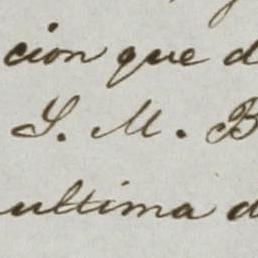 cion que d
S. M. B
ultima d